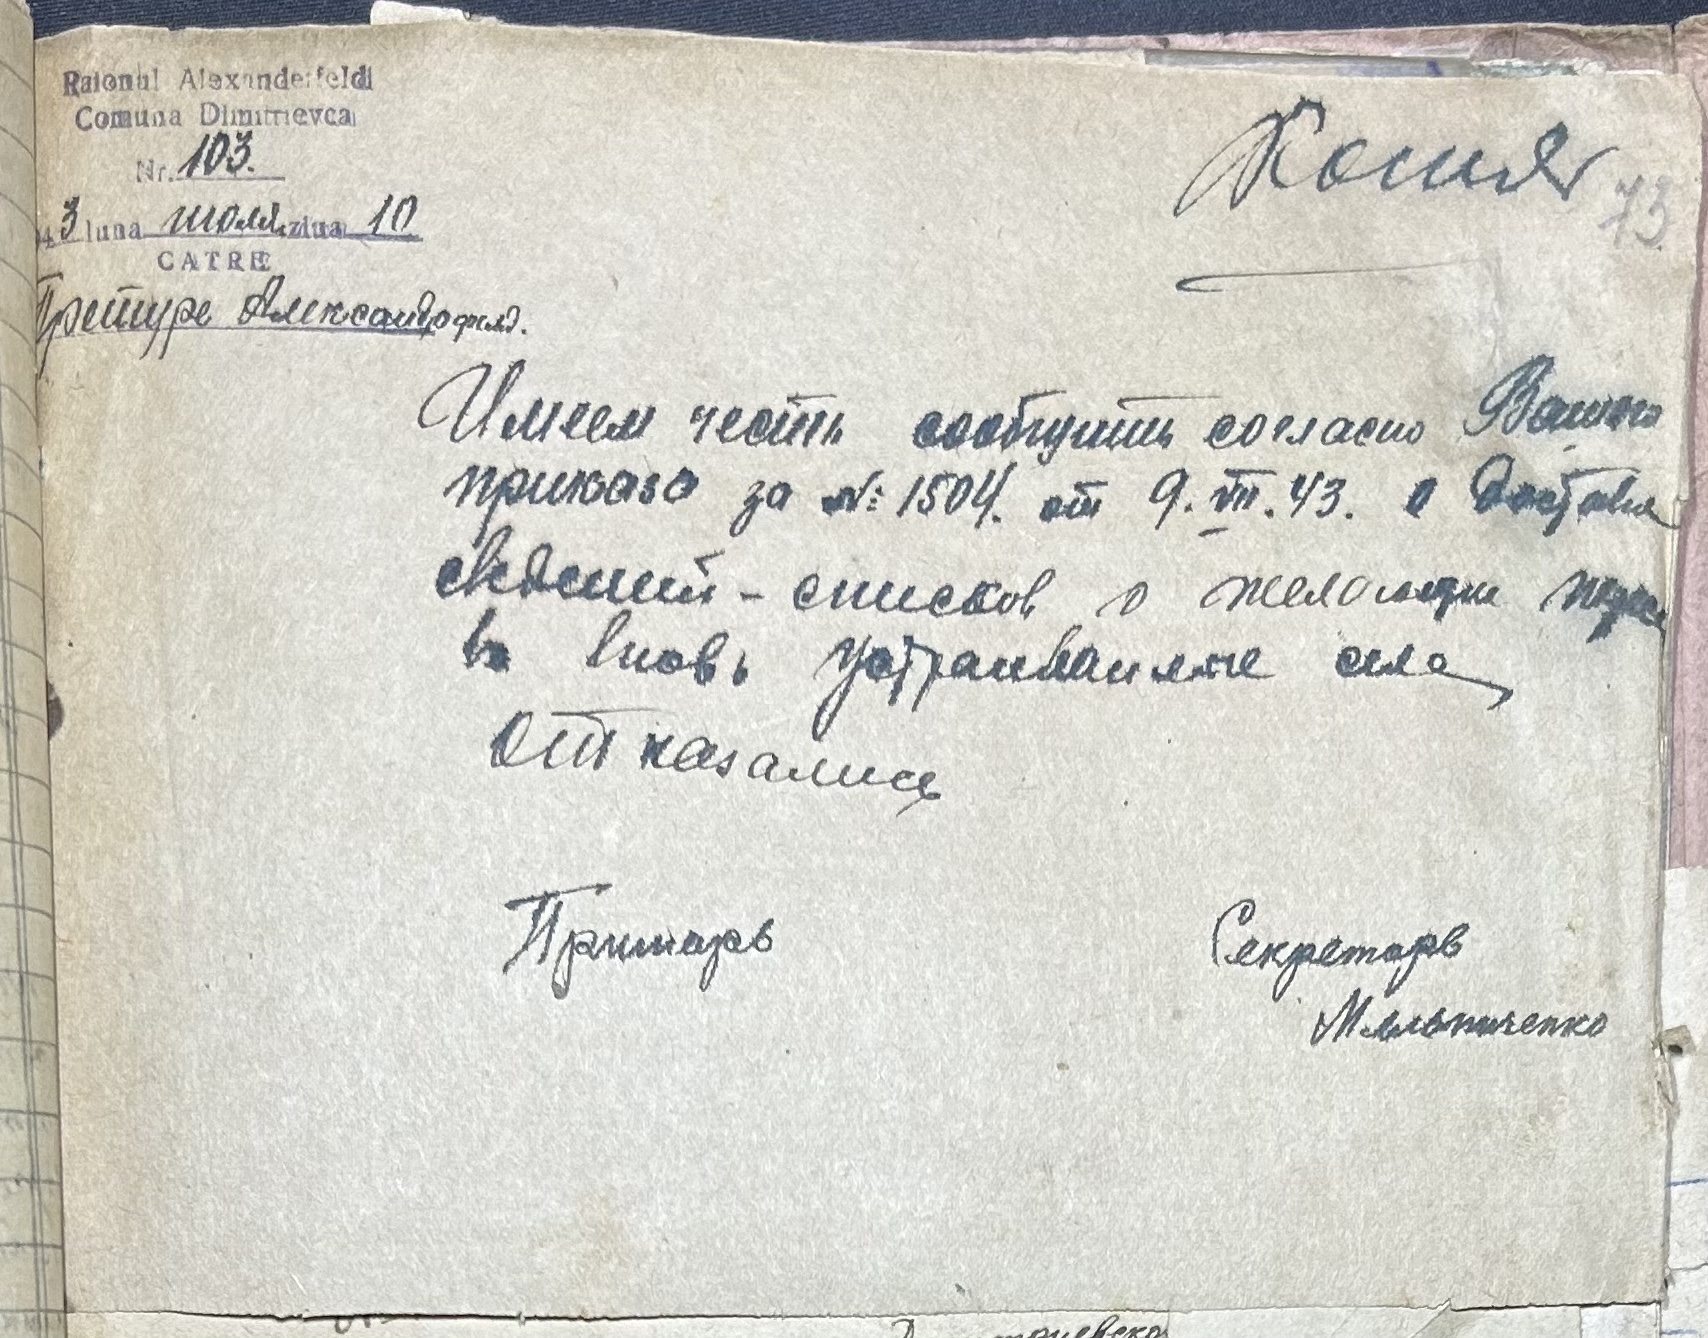 Raionul Alexanderfeld
Comuna Dimitrievca
Nr. 103.
43 luna июля ziua 10
CATRE
Претуре Александрфельд.
Копия
73
Имеем честь сообщить согласно Вашого
приказа за №: 1504. от 9. VII. 43. о доставке
сведений - списков о желающих
во вновь устраиваимые села
отказались
Примарь
Секретарь
Мельниченко